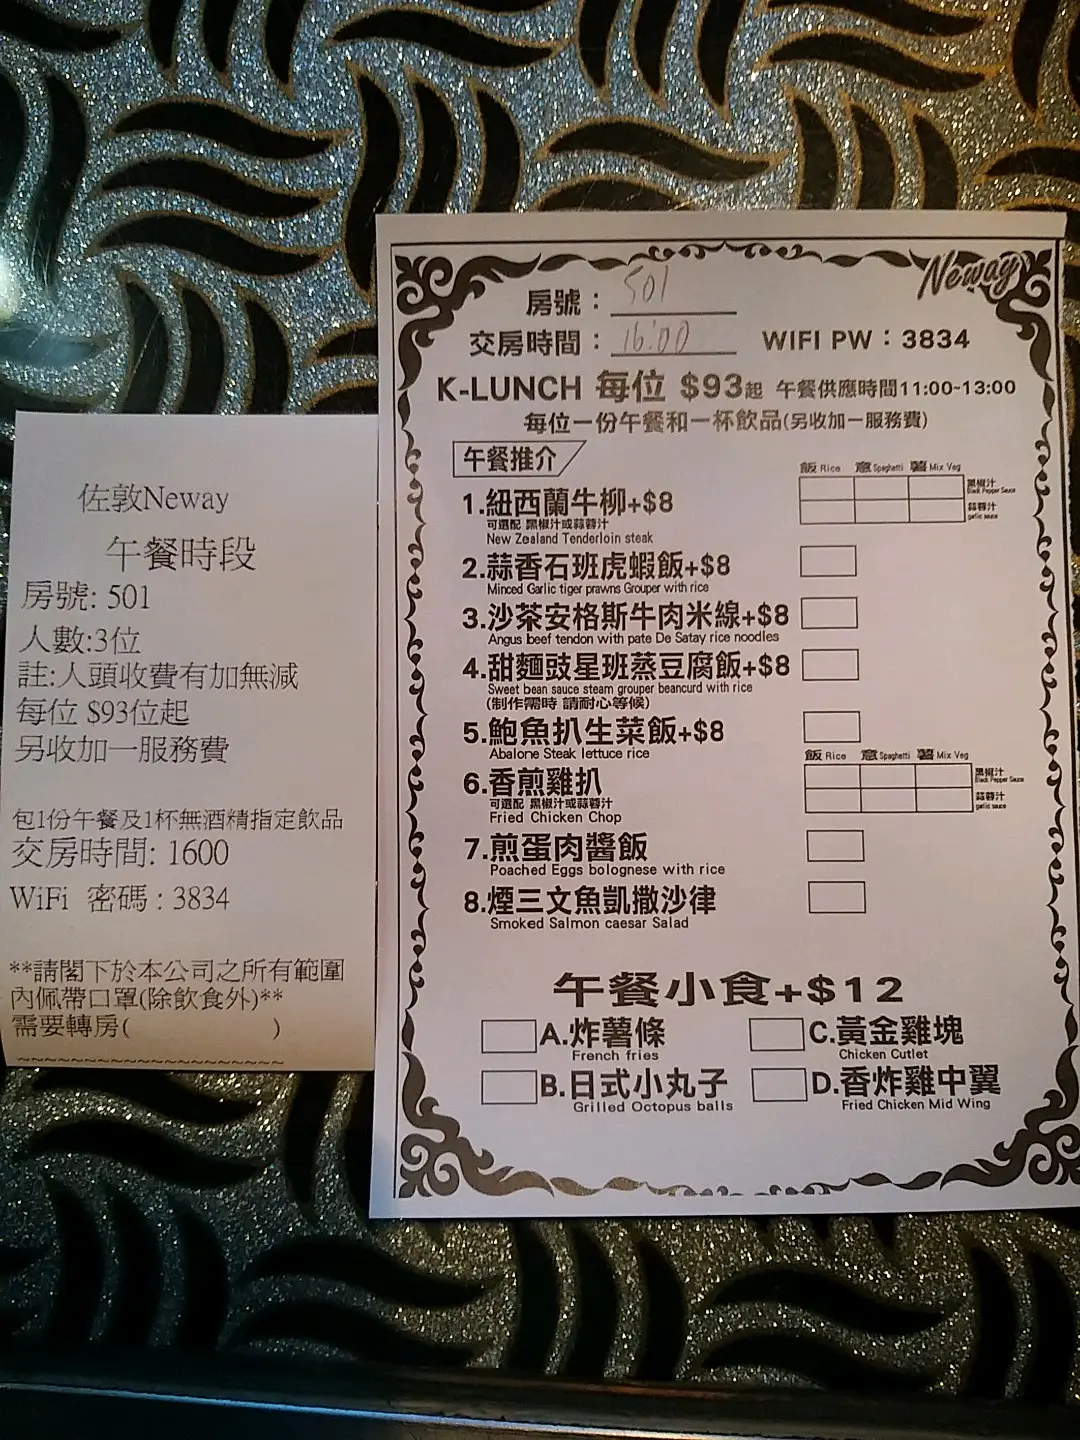 佐敦Neway
午餐時段
房號: 501
人數:3位
註:人頭收費有加無減
每位 $93位起
另收加一服務費
包1份午餐及1杯無酒精指定飲品
交房時間: 1600
WiFi 密碼 : 3834
**請閣下於本公司之所有範圍
內佩帶口罩(除飲食外)**
需要轉房( )
~~~~~~~~~~~~~~~~~~~~~~~~
Neway
房號：501
交房時間：16:00 WIFI PW：3834
K-LUNCH 每位 $93起 午餐供應時間11:00~13:00
每位一份午餐和一杯飲品(另收加一服務費)
午餐推介
飯 Rice 意 Spaghetti 薯 Mix Veg
黑椒汁
Black Pepper Sauce
蒜蓉汁
garlic sauce
1.紐西蘭牛柳+$8
可選配 黑椒汁或蒜蓉汁
New Zealand Tenderloin steak
2.蒜香石班虎蝦飯+$8
Minced Garlic tiger prawns Grouper with rice
3.沙茶安格斯牛肉米線+$8
Angus beef tendon with pate De Satay rice noodles
4.甜麵豉星班蒸豆腐飯+$8
Sweet bean sauce steam grouper beancurd with rice
(制作需時 請耐心等候)
5.鮑魚扒生菜飯+$8
Abalone Steak lettuce rice
飯 Rice 意 Spaghetti 薯 Mix Veg
黑椒汁
Black Pepper Sauce
蒜蓉汁
garlic sauce
6.香煎雞扒
可選配 黑椒汁或蒜蓉汁
Fried Chicken Chop
7.煎蛋肉醬飯
Poached Eggs bolognese with rice
8.煙三文魚凱撒沙律
Smoked Salmon caesar Salad
午餐小食+$12
A.炸薯條
French fries
C.黃金雞塊
Chicken Cutlet
B.日式小丸子
Grilled Octopus balls
D.香炸雞中翼
Fried Chicken Mid Wing